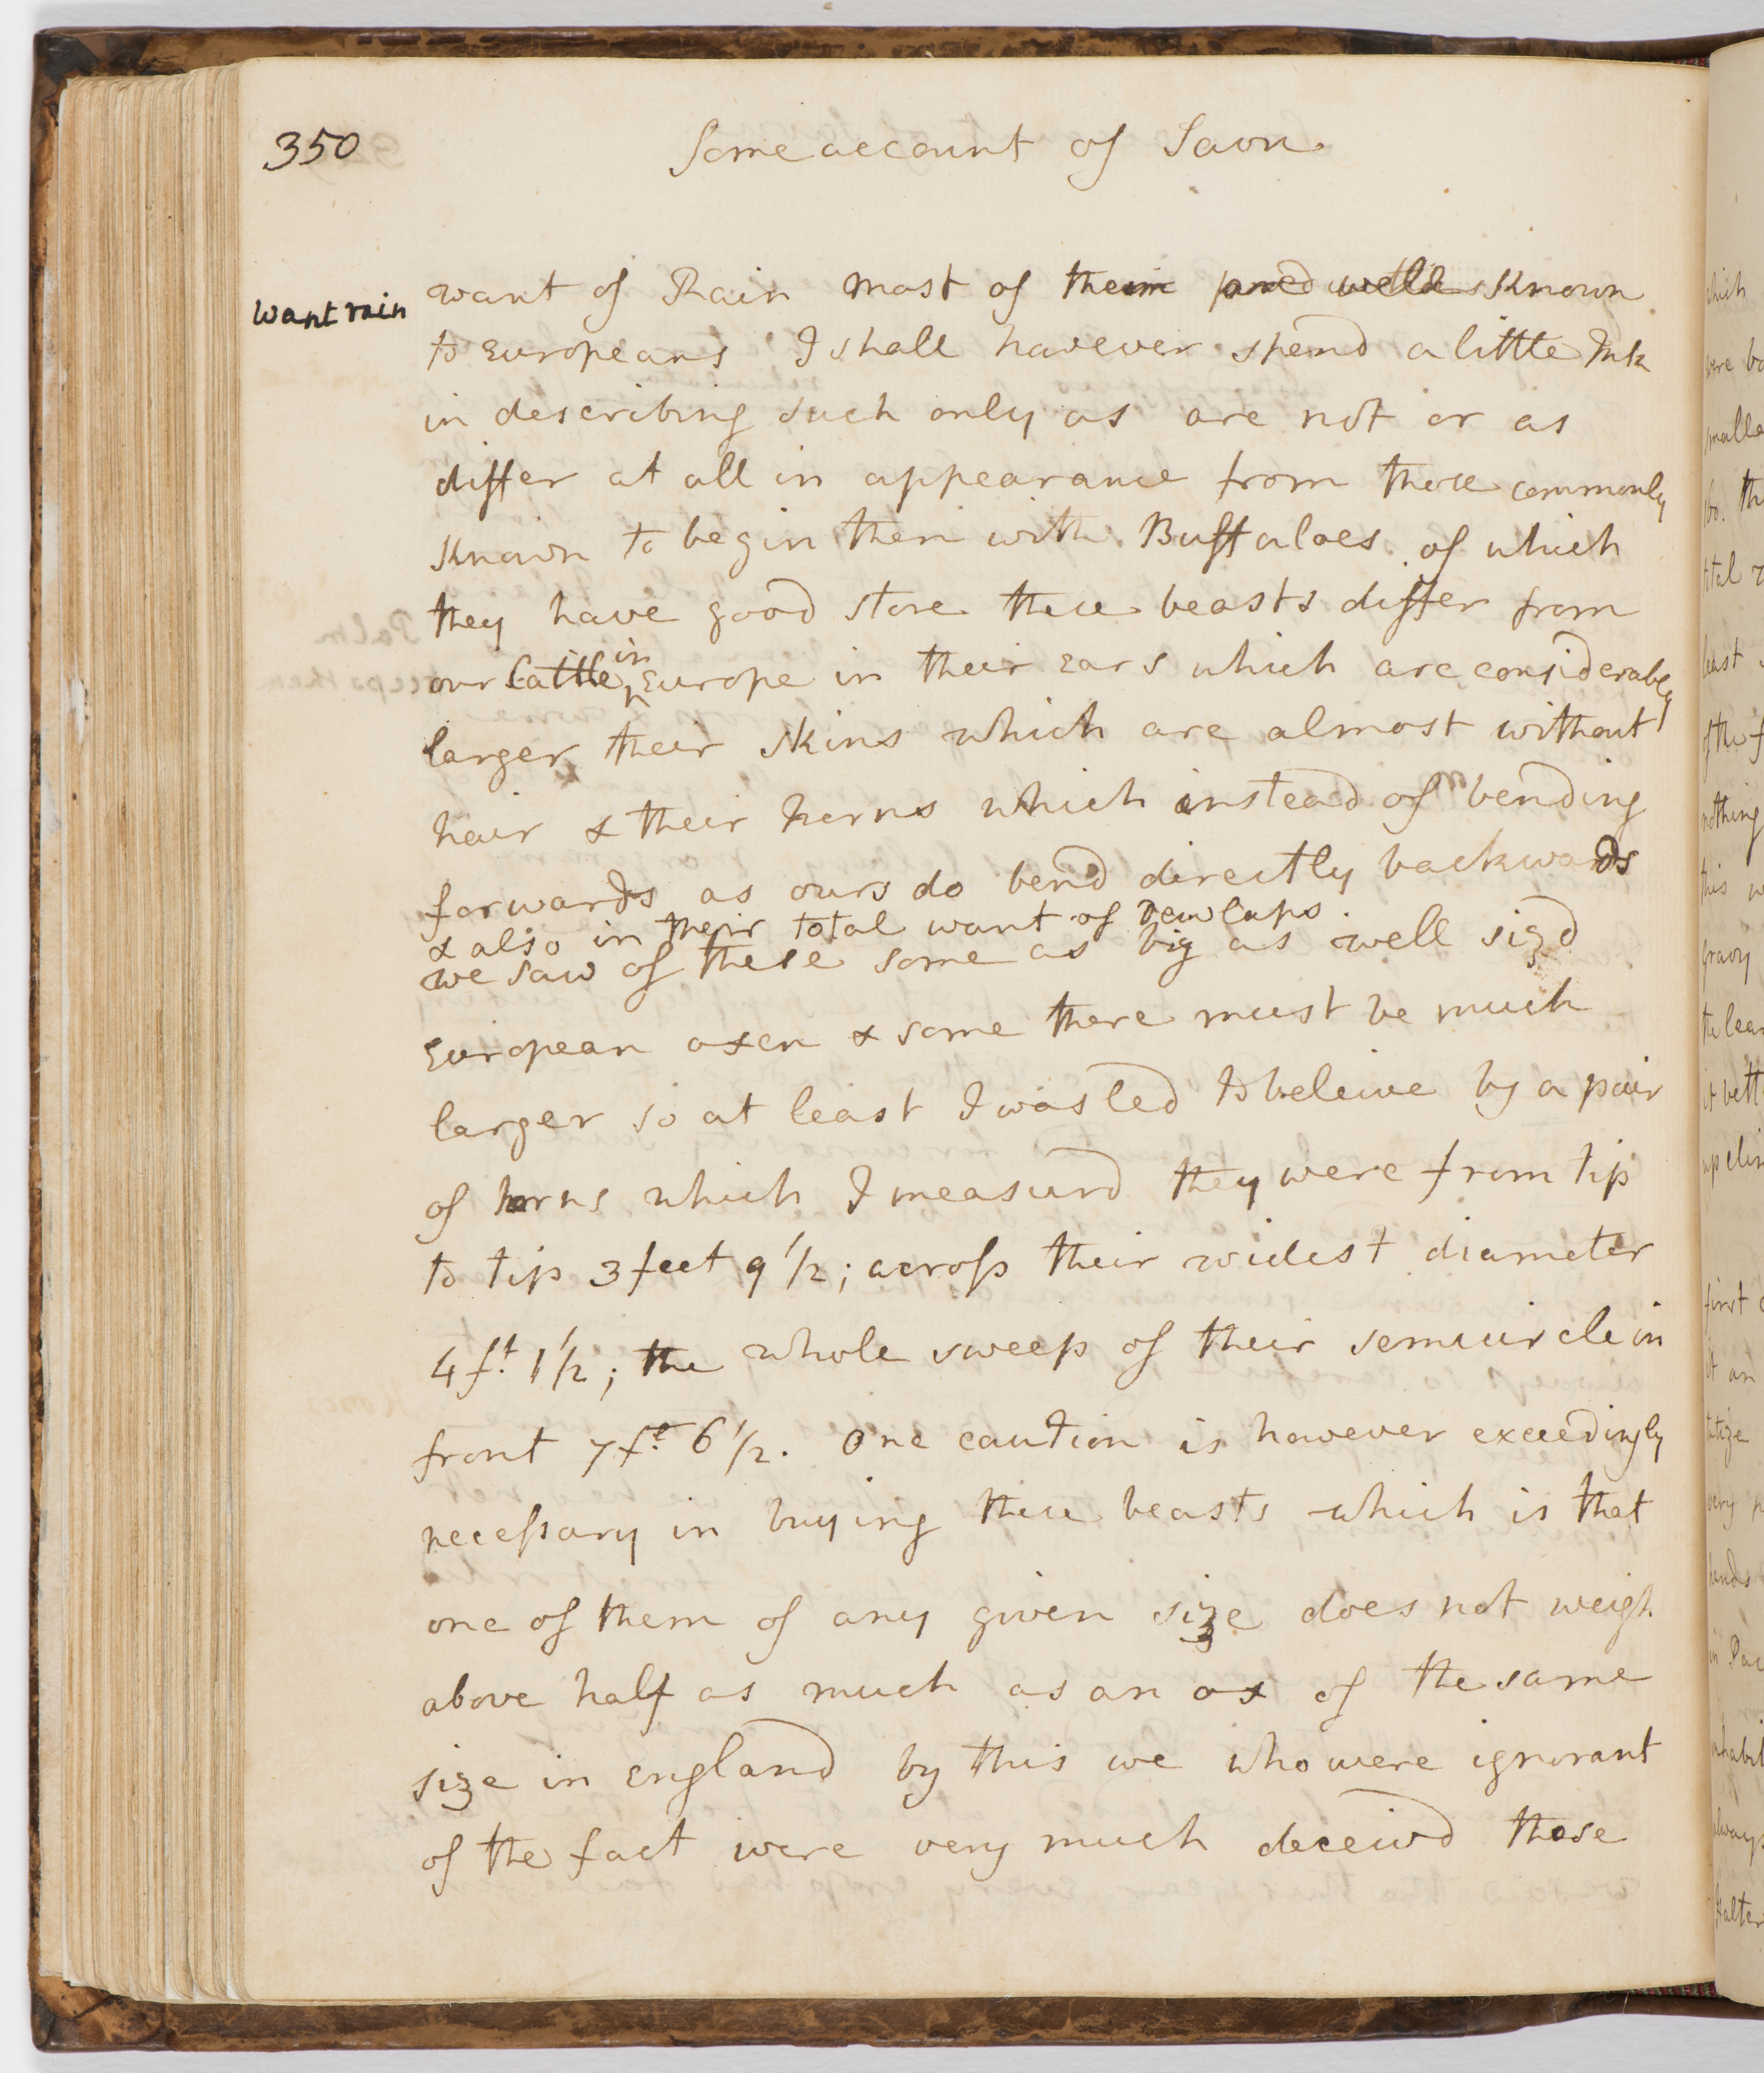 350
Some account of Savu
Want rain
want of Rain most of them are well known
to Europeans I shall however spend a little Ink
in describing such only as are not or as
differ at all in appearance from those commonly
known to begin then with Buffaloes of which
they have good store these beasts differ from
our Cattle in Europe in their Ears which are considerably
larger their skins which are almost without
hair & their horns which instead of bending
forwards as ours do bend directly backwards
& also in their total want of Dewlaps.
we saw of these some as big as well sizd
European oxen & some there must be much
larger so at least I was led to beleive by a pair
of horns which I measurd they were from tip
to tip 3 feet 9 1/2; across their widest diameter
4 ft. 1 1/2; the whole sweep of their semicircle in
front 7 ft. 6 1/2. One caution is however exceedingly
necessary in buying these beasts which is that
one of them of any given size does not weigh
above half as much as an ox of the same
size in England by this we who were ignorant
of the fact were very much deceivd those